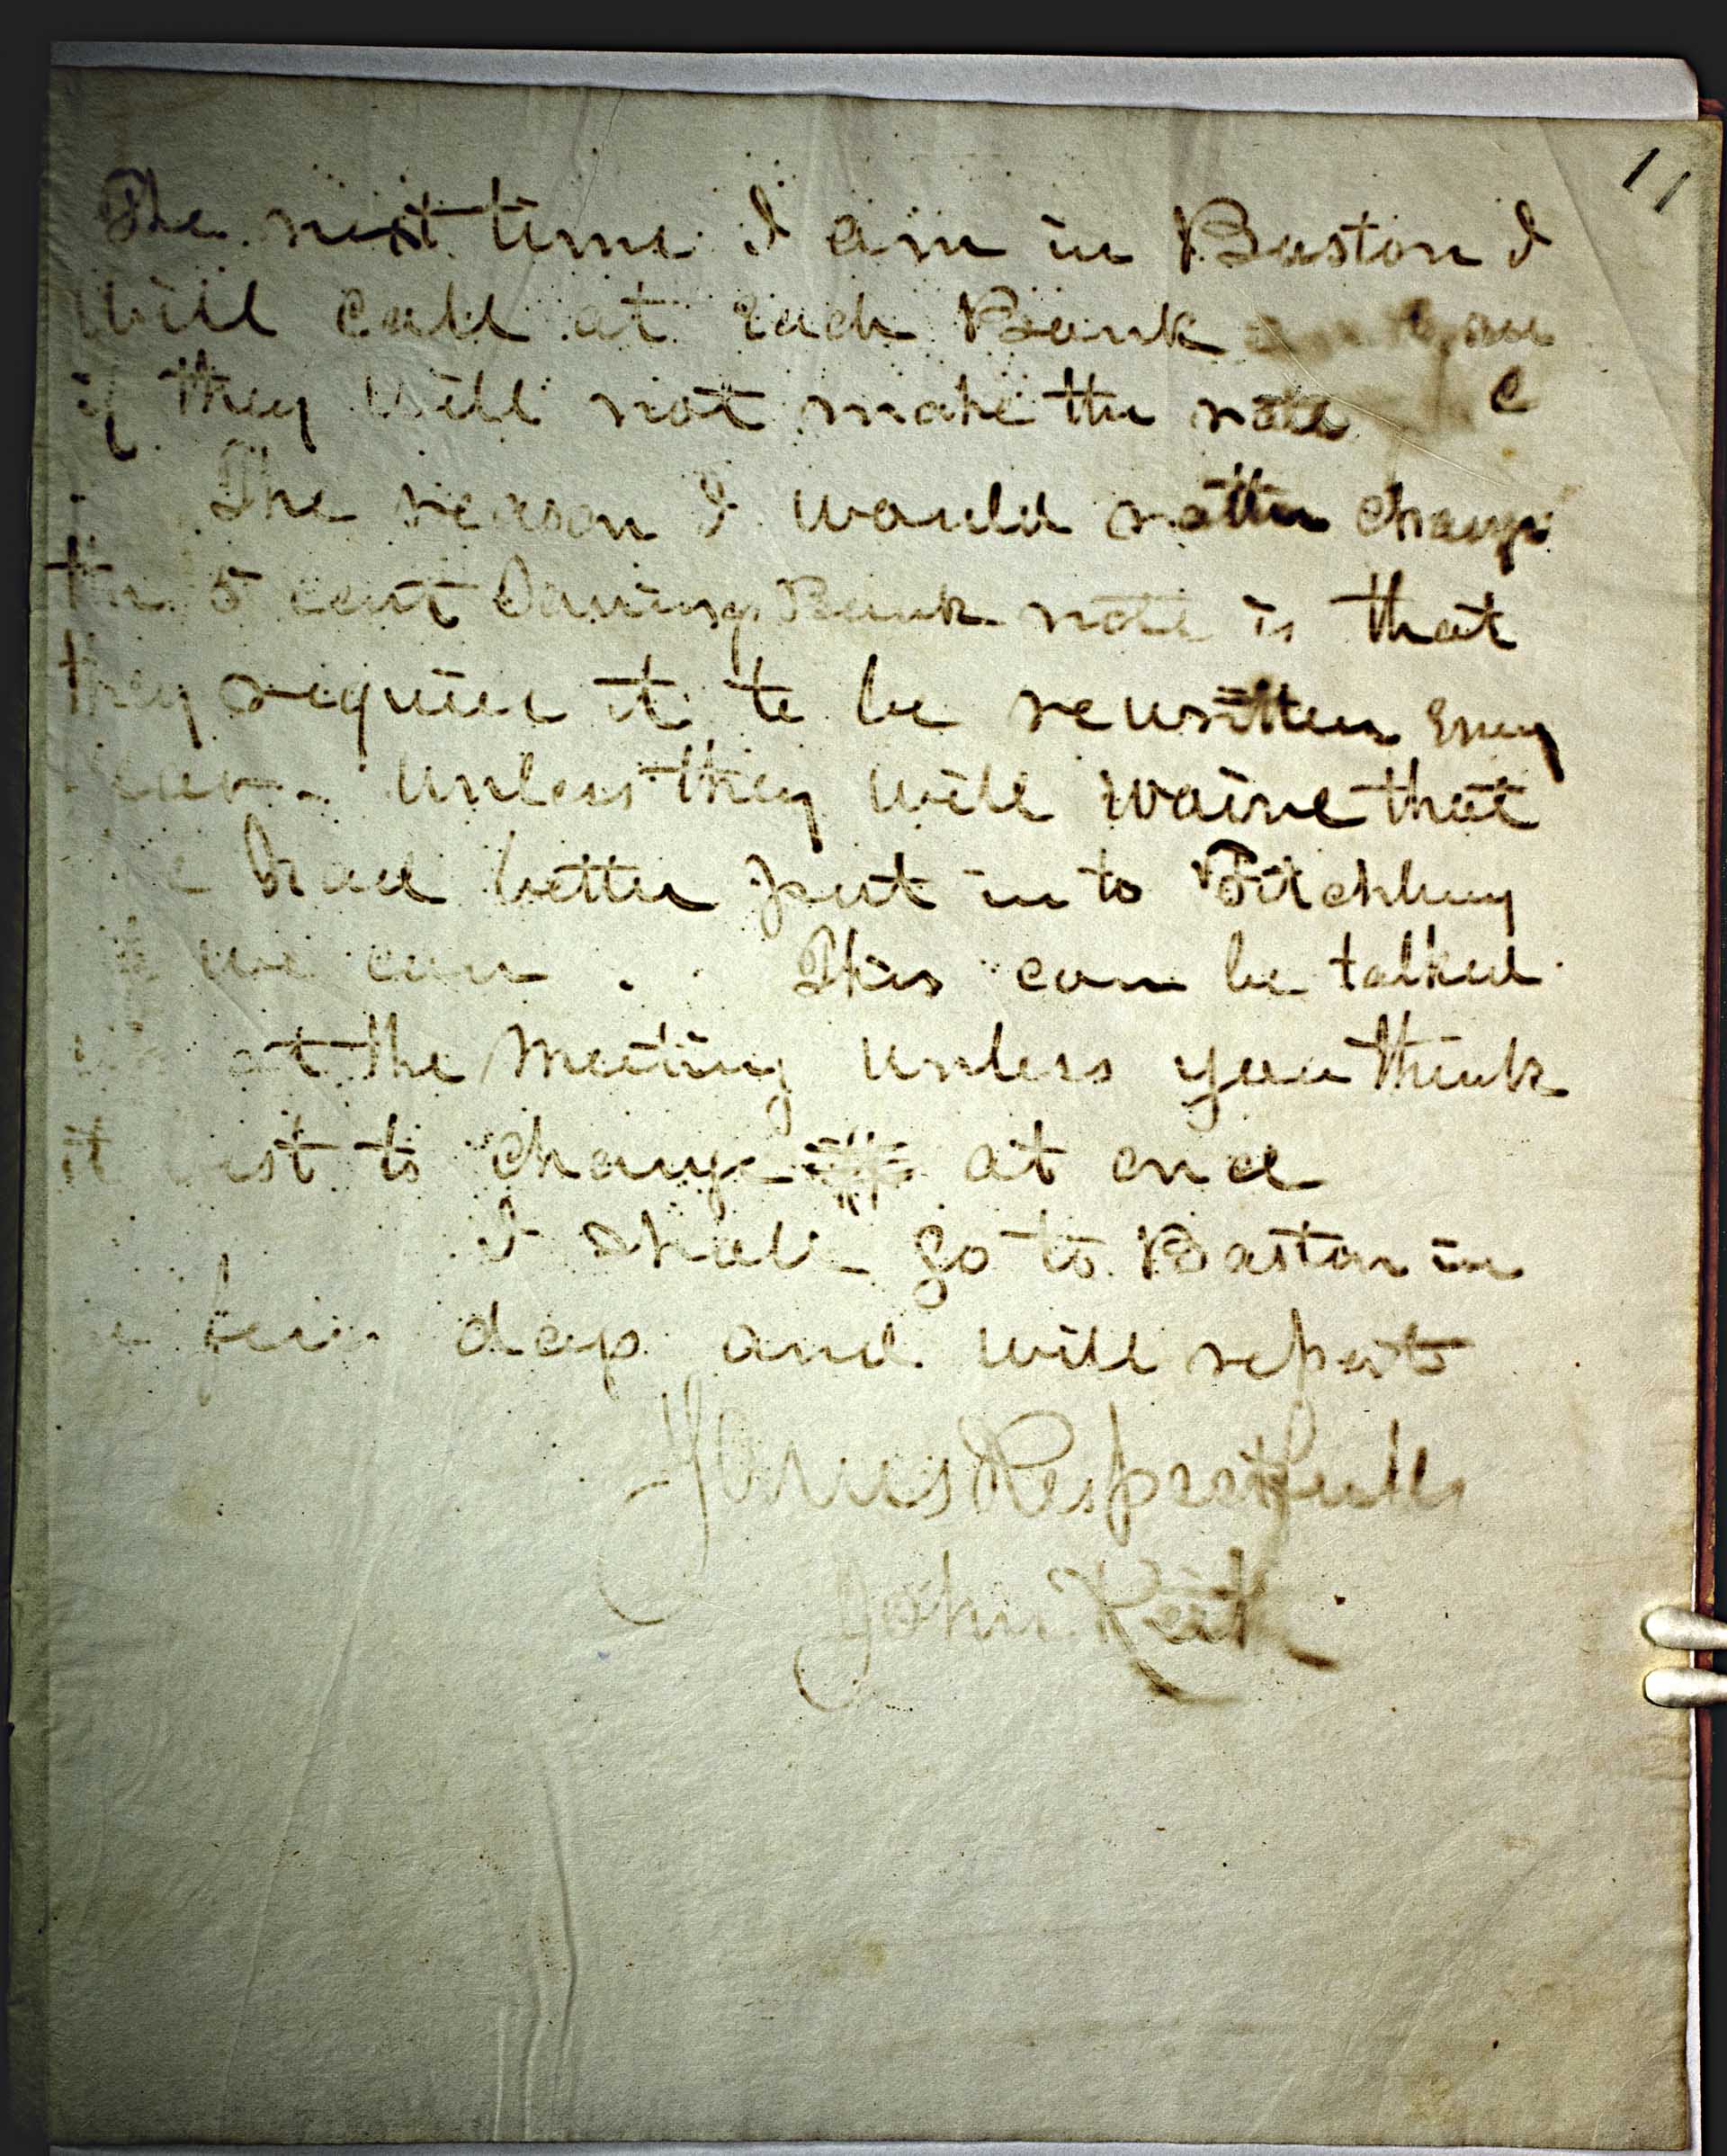 11
The next time I am in Boston I
will call at each Bank
if they will not make the rate
The reason I would rather change
the 5 cent Savings Bank note is that
they require it to be rewritten every
year - unless they will waive that
had better put in to Fitchburg
if we can . This can be talked
at the meeting unless you think
it best to change at once
I shall go to Boston in
a few days and will report
Yours Respectfully
John Keith